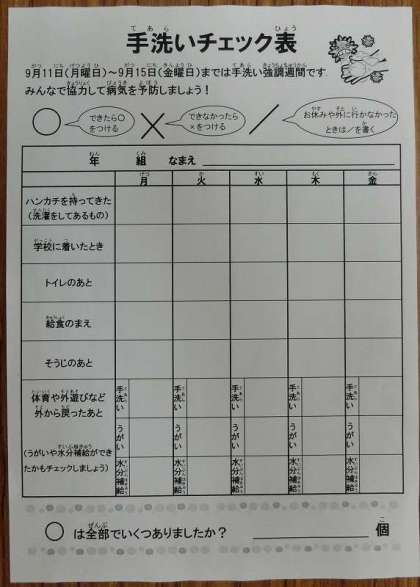 手洗いチェック表
9月11日(月曜日)～9月15日(金曜日)までは手洗い強調週間です.
みんなで協力して病気を予防しましょう！
できたら○
をつける
できなかったら
×をつける
お休みや外に行かなかった
ときは／を書く
年 組 なまえ
月 火 水 木 金
ハンカチを持ってきた
(洗濯をしてあるもの)
学校に着いたとき
トイレのあと
給食のまえ
そうじのあと
体育や外遊びなど
外から戻ったあと
(うがいや水分補給ができ
たかもチェックしましょう)
手洗い 手洗い 手洗い 手洗い 手洗い
うがい うがい うがい うがい うがい
水分補給 水分補給 水分補給 水分補給 水分補給
○は全部でいくつありましたか？ 個